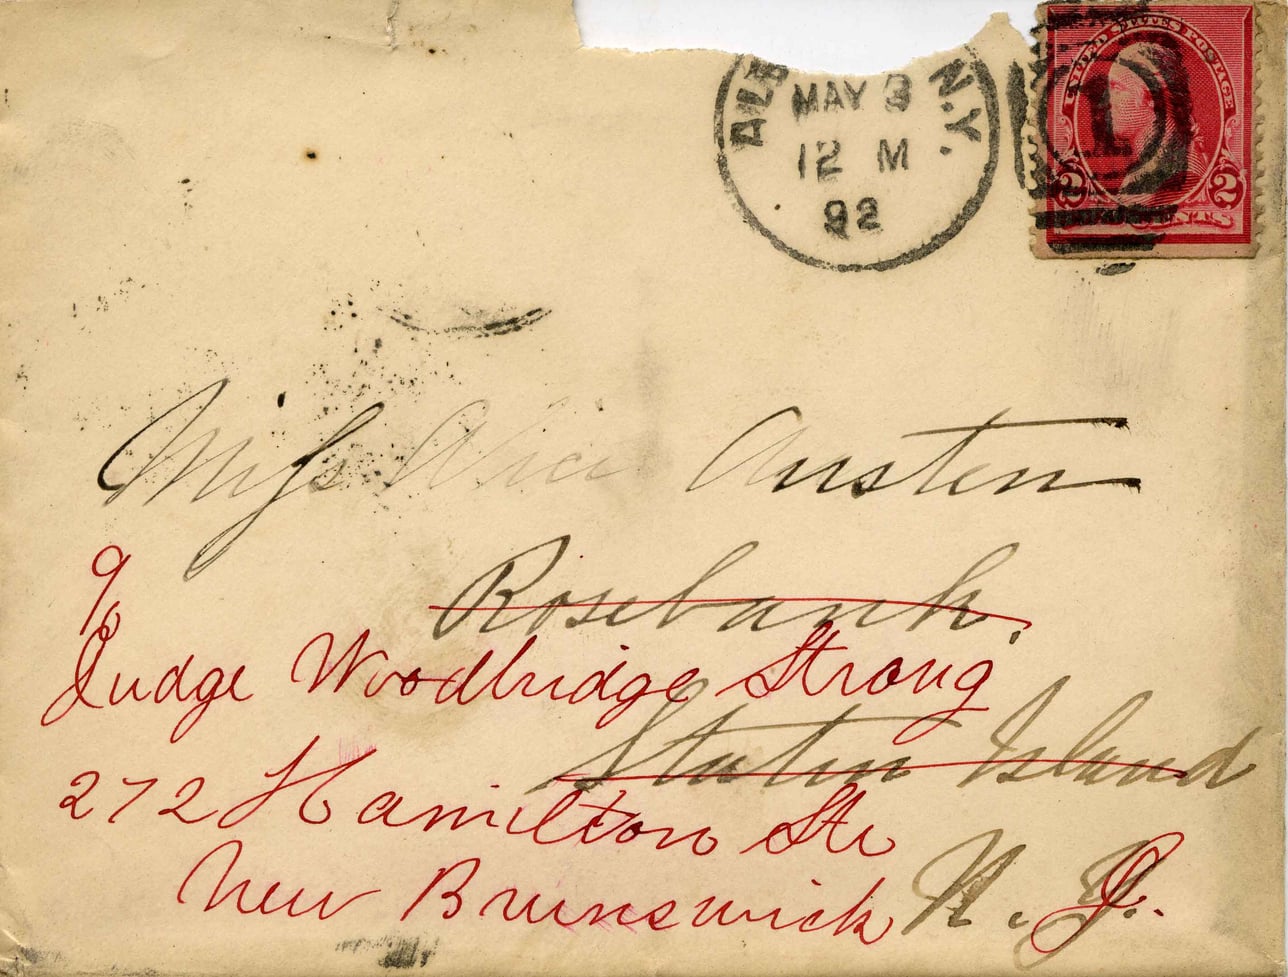 ALB N.Y.
MAY 3
12 M
92
UNITED STATES POSTAGE
1
2 2
CENTS
Miss Alice Austen
Rosebank.
c/o
Judge Woodbridge Strong
Staten Island
272 Hamilton St.
New Brunswick N. J.
N. Y.